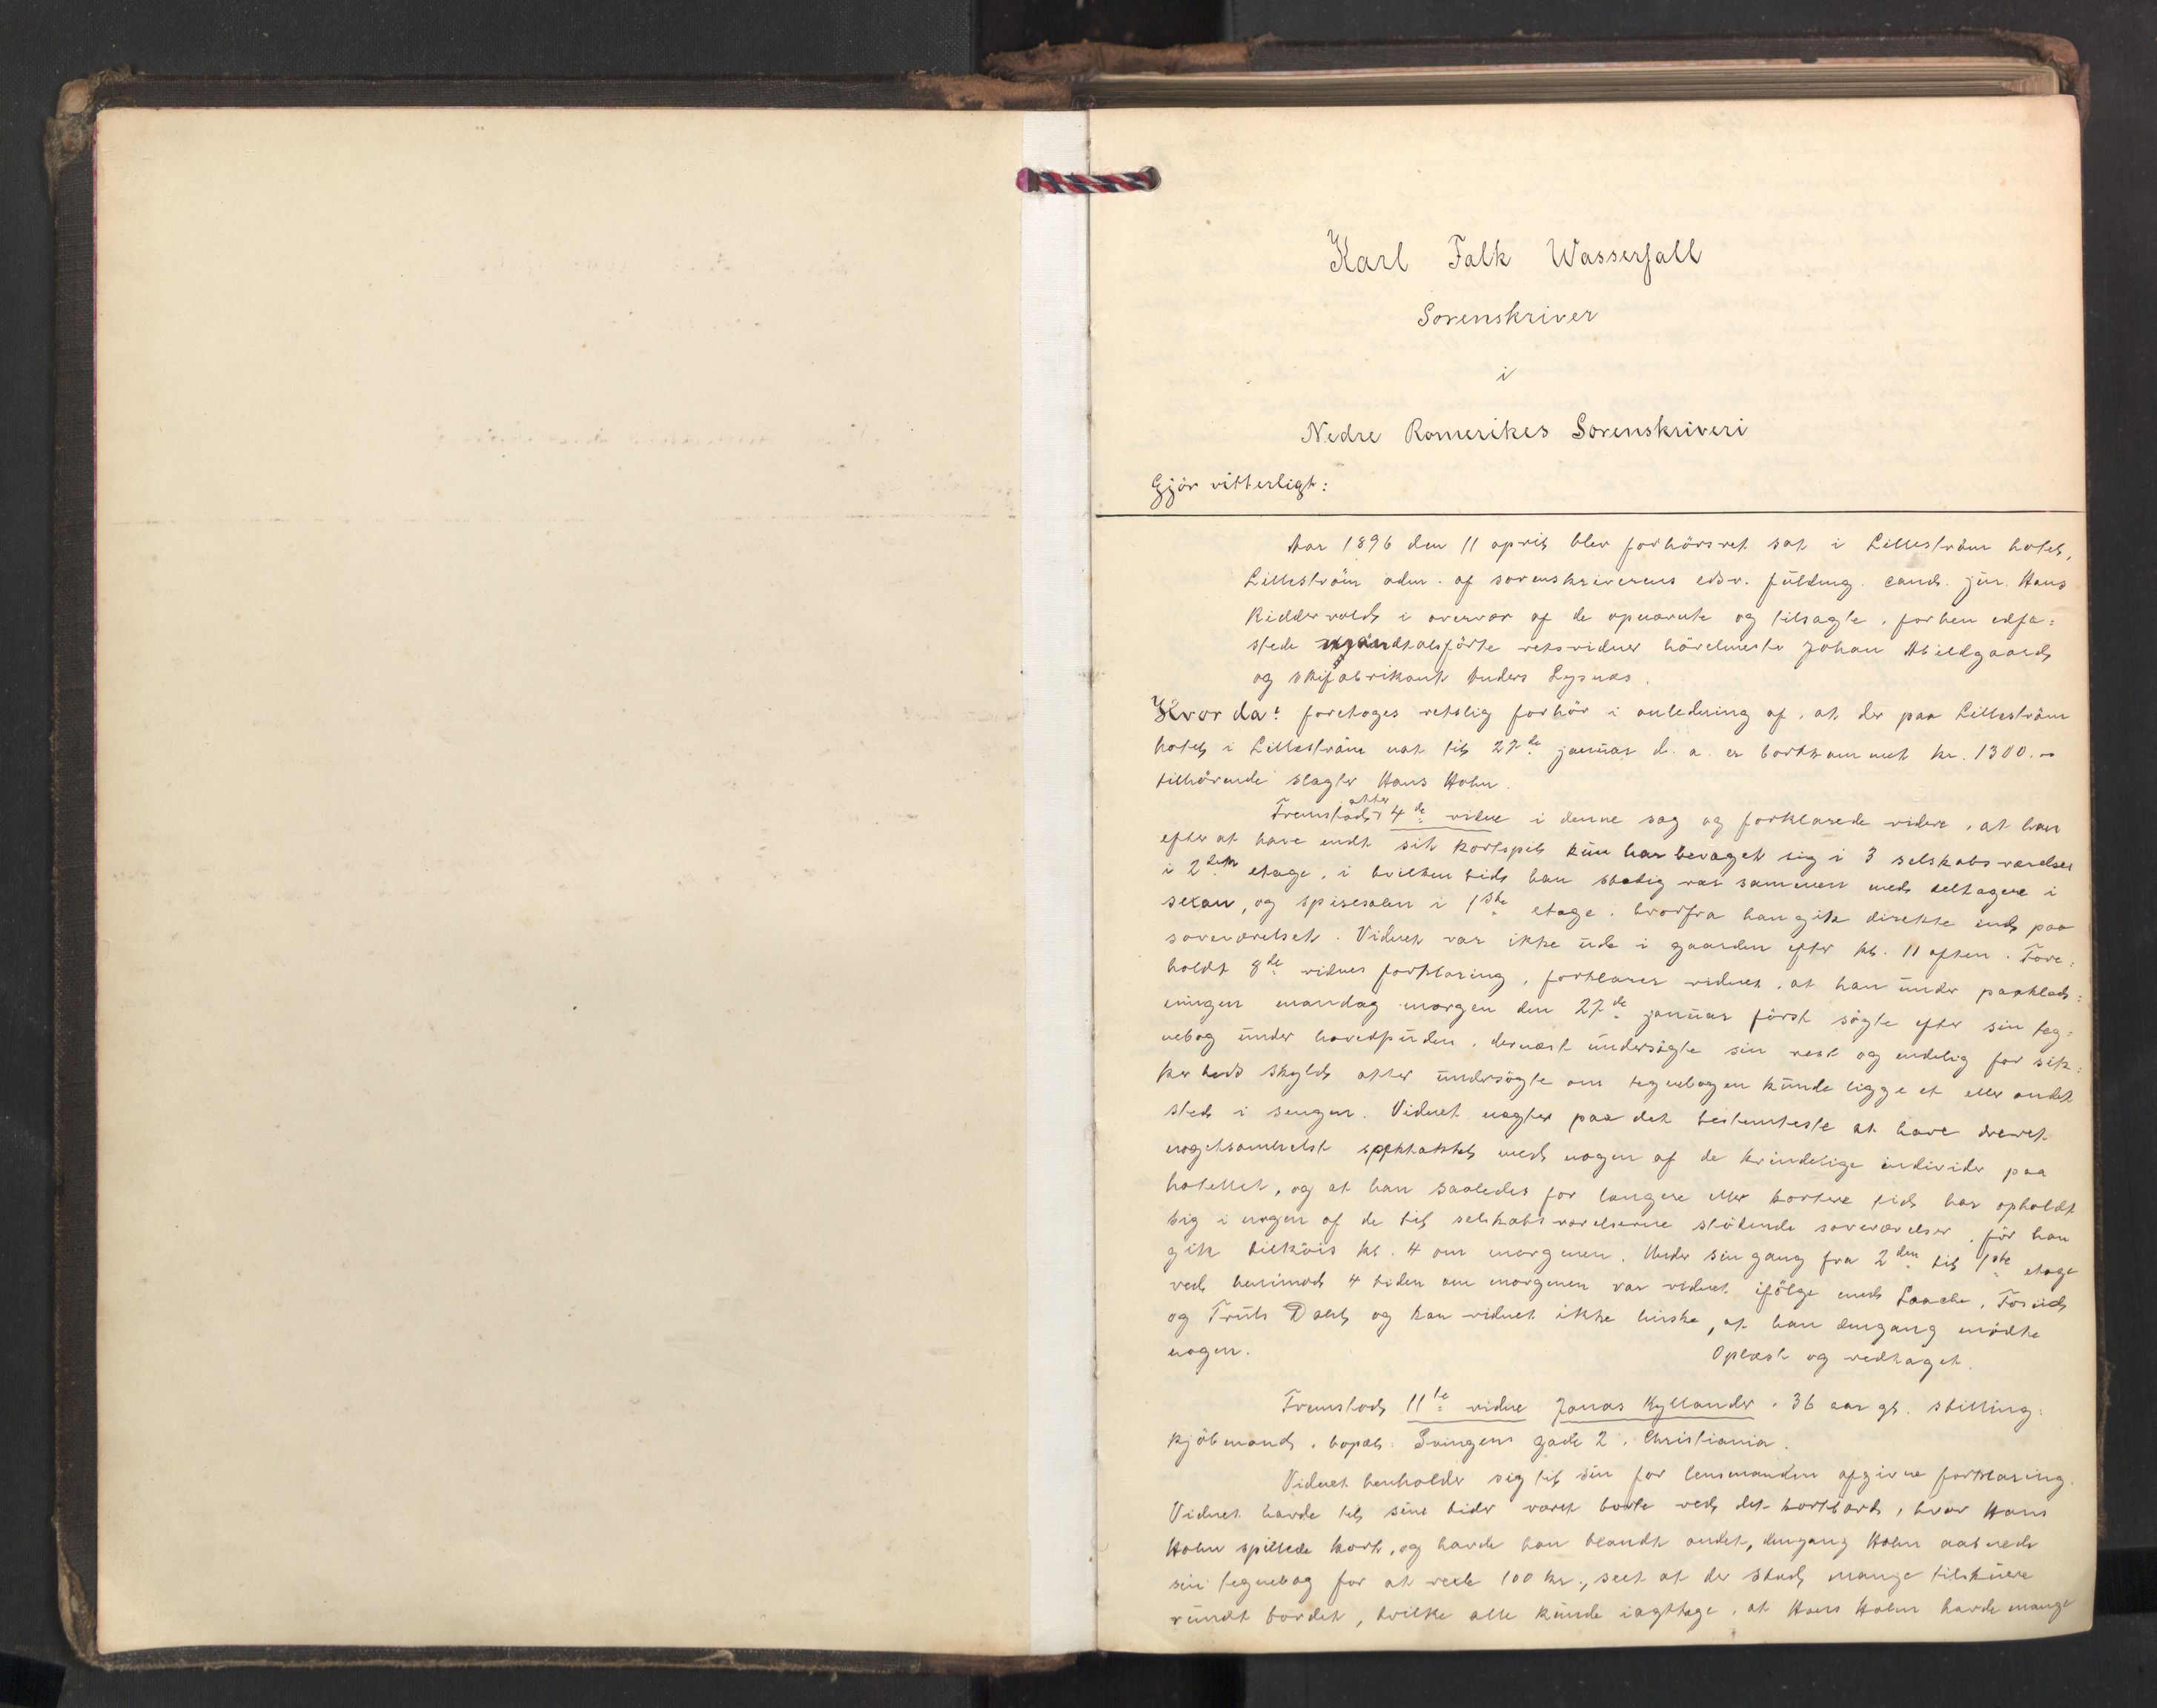 Karl Falk Wasserfall
Sorenskriver
i
Nedre Romerikes Sorenskriveri
Gjör vitterligt:
Aar 1896 den 11 april blev forhörsret sat i Lilleström hotel,
Lilleström adm. af sorenskriverens edsv. fuldmg. cand. jur. Hans
Ridderrold i overvær af de opnævnte og tilsagte, forhen edfæ=
stede retsvidner Johan Abildgaard
og skifabrikant Anders Lysnæs.
Hvorda: foretoges retslig forhör i anledning af, at der paa Lilleström
hotel i Lilleström nat til 27de januar d. a. er bortkommet kr. 1300.-
tilhörende slagter Hans Holm.
Fremstod atter 4de vidne i denne sag og forklarede videre, at han
efter at have endt sit kortspil kun har bevæget sig i 3 selskabsværelser
i 2den etage, i hvilken tid han stadig var sammen med deltagere i
sexan, og spisesalen i 1ste etage, hvorfra han gik direkte ind paa
soveværelset. Vidnet var ikke ude i gaarden efter kl. 11 aften. Fore=
holdt 8de vidnes forklaring, forklarer vidnet, at han under paaklæd=
ningen mandag morgen den 27de januar först sögte efter sin teg=
nebog under hovedpuden, dernæst undersögte sin vest og endelig for sik=
kerheds skyld atter undersögte om tegnebogen kunde ligge et eller andet
sted i sengen. Vidnet nægter paa det bestemteste at have drevet
nogetsomhelst spektakkel med nogen af de kvindelige individer paa
hotellet, og at han saaledes for længere eller kortere tid har opholdt
sig i nogen af de til selskabsværelserne stödende soveværelser, för han
gik tilköis kl. 4 om morgenen. Under sin gang fra 2den til 1ste etage
ved henimod 4 tiden om morgenen var vidnet ifölge med Laache, Foseid
og Truls Dahl og kan vidnet ikke huske, at han dengang mödte
nogen. Oplæst og vedtaget.
Fremstod 11te vidne Jonas Kyllander, 36 aar gl. stilling:
kjöbmand, bopæl: Svingens gade 2, Christiania.
Vidnet henholder sig til sin for lensmanden afgivne forklaring.
Vidnet havde til sine tider været borte ved det kortbord, hvor Hans
Holm spillede kort, og havde han blandt andet, dengang Holm aabnede
sin tegnebog for at vexle 100 kr., seet at der stod mange tilskuere
rundt bordet, hvilke alle kunde iagttage, at Hans Holm havde mange